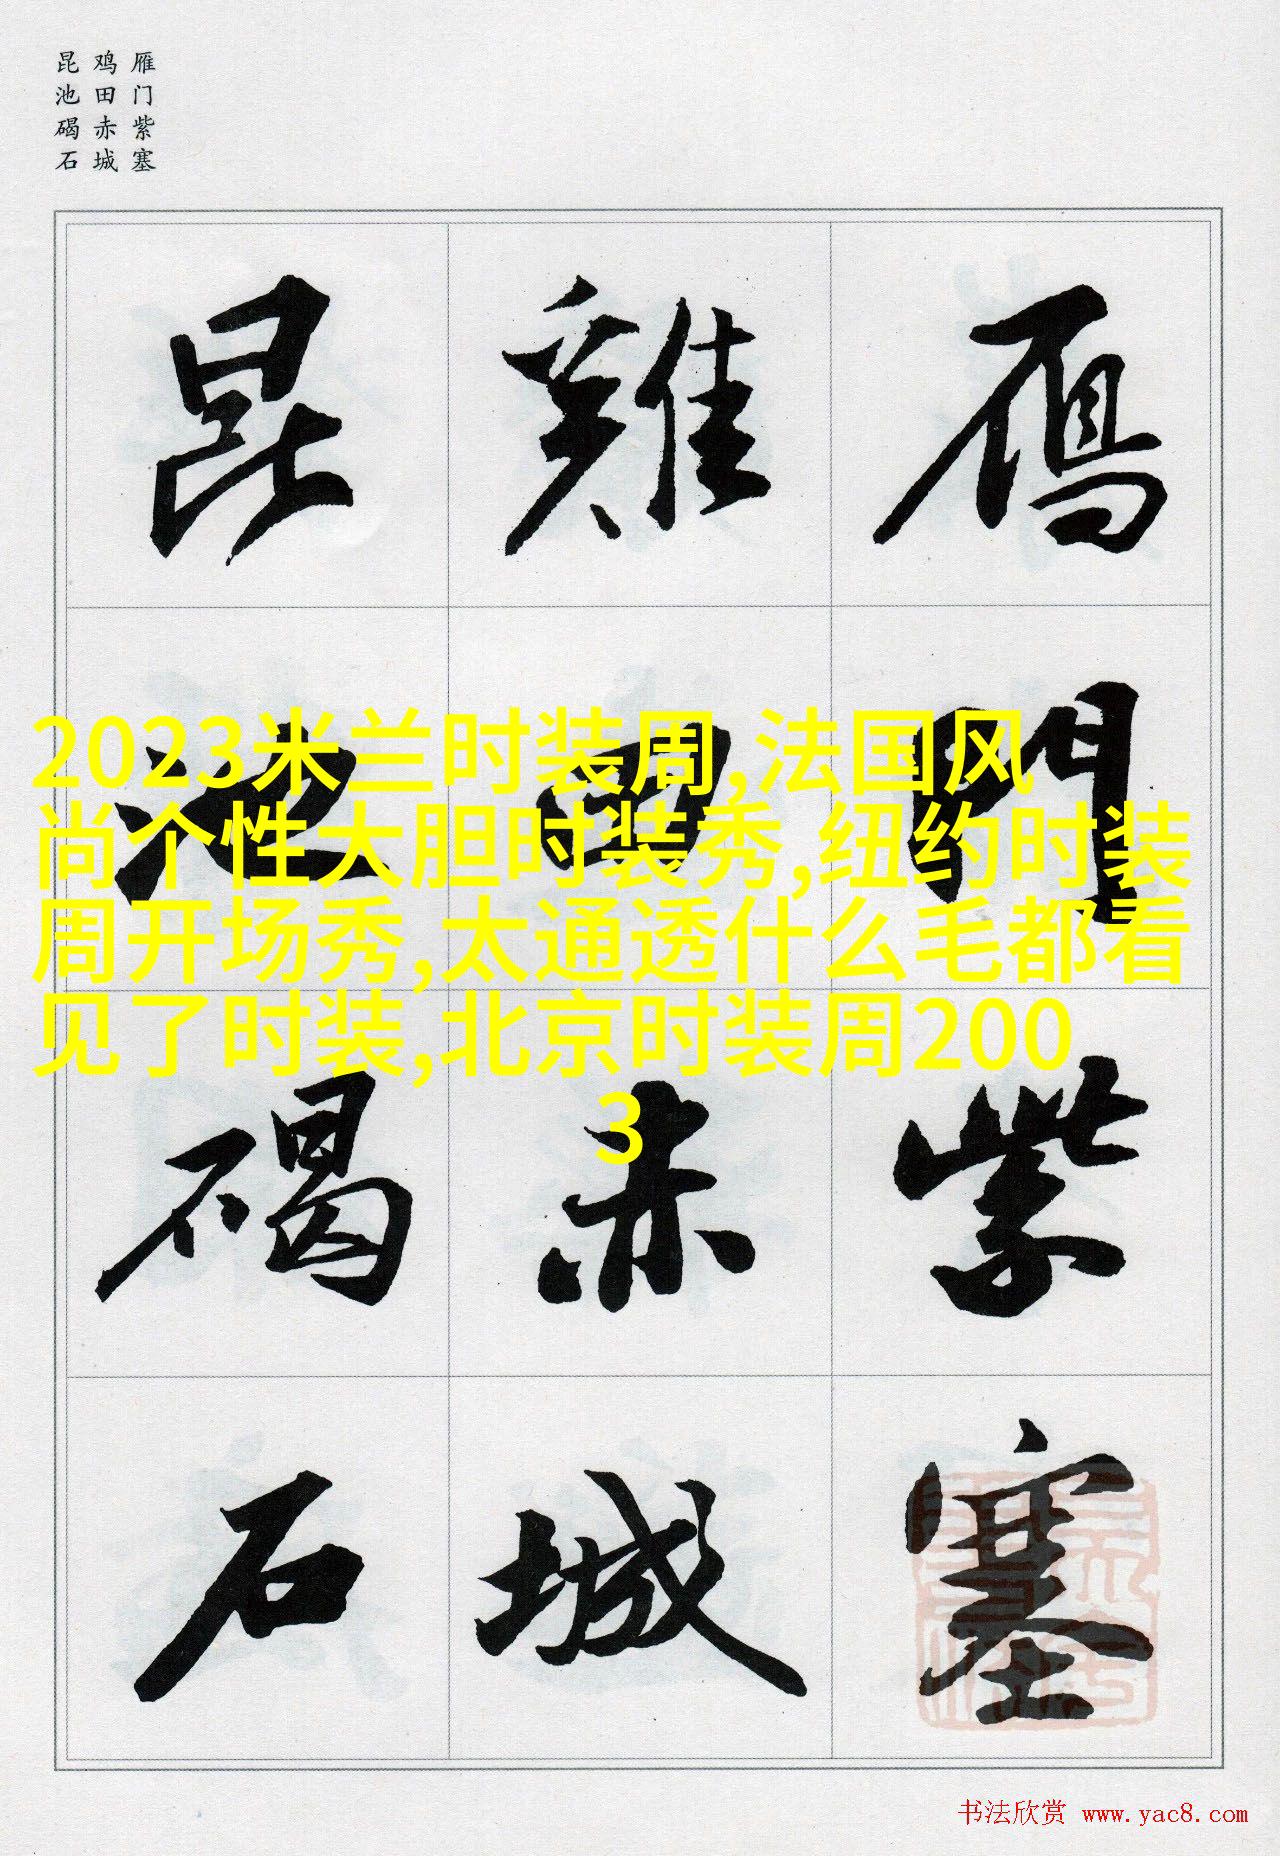 雁门紫塞
鸡田赤城
昆池碣石
鴈門紫塞
雞田赤城
昆池碣石
2023米兰时装周,法国风
尚个性大胆时装秀,纽约时装
周开场秀,太通透什么毛都看
见了时装,北京时装周200
3
书法欣赏 www.yac8.com